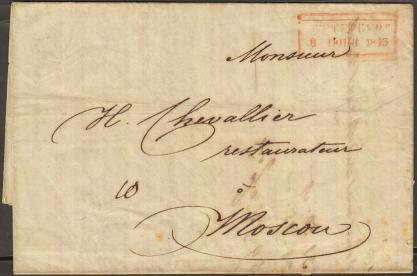 Monsieur
H. Chevallier
restaurateur
10
à
Moscou